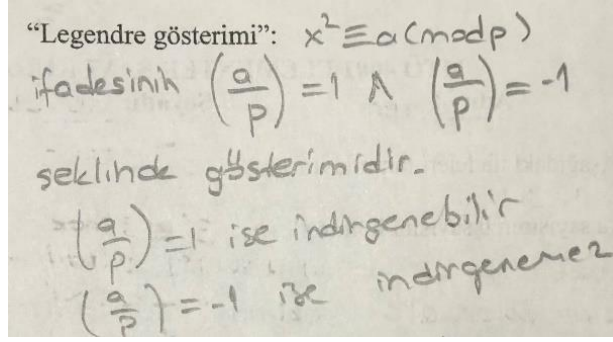 "Legendre gösterimi": x² ≡ a (mod p)
ifadesinin (a/p) = 1 ∧ (a/p) = -1
şeklinde gösterimidir.
(a/p) = 1 ise indirgenebilir
(a/p) = -1 ise indirgenemez